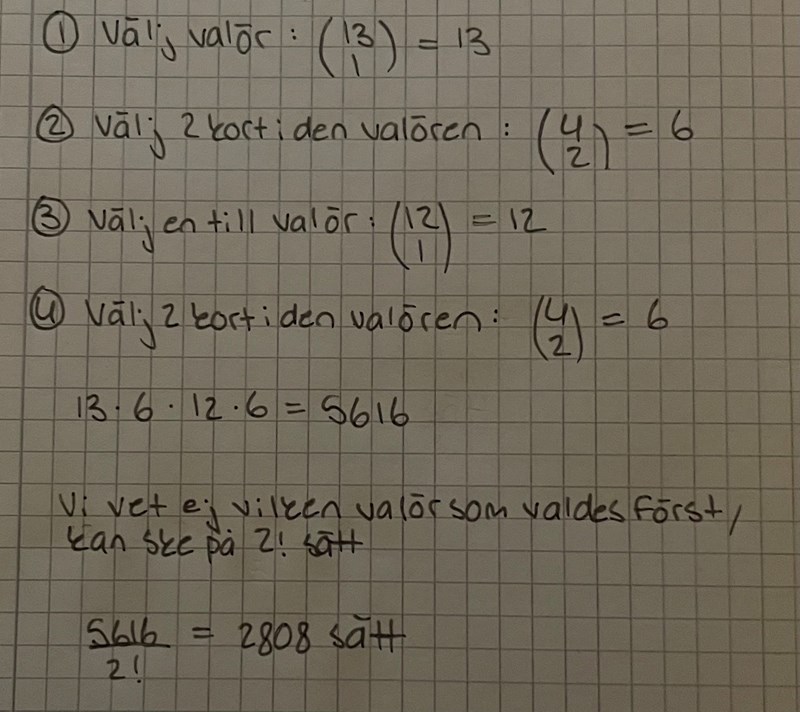 ① Välj valör : (13 1) = 13
② Välj 2 kort i den valören : (4 2) = 6
③ Välj en till valör : (12 1) = 12
④ Välj 2 kort i den valören : (4 2) = 6
13 · 6 · 12 · 6 = 5616
Vi vet ej vilken valör som valdes först,
kan ske på 2! sätt
5616 / 2! = 2808 sätt